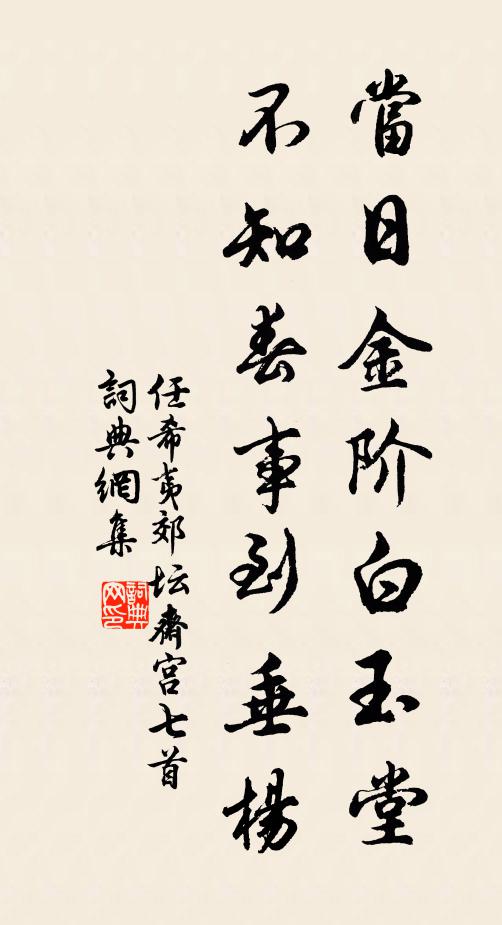 當日金阶白玉堂
不知春事到垂楊
任希夷郊坛齋宫七首
詞典網集
詞典网印